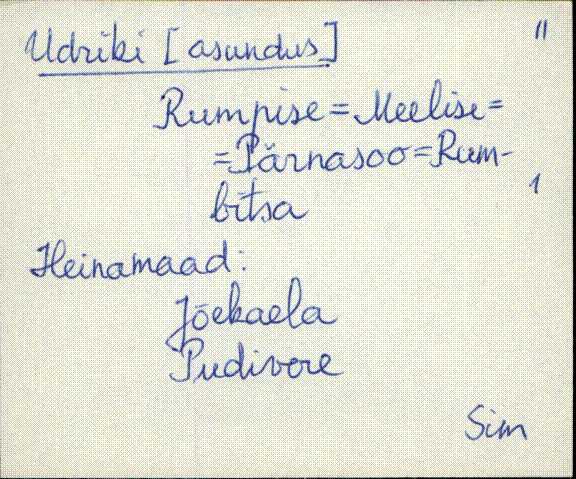 Udriki [asundus]
"
Rumpise = Meelise =
= Pärnasoo = Rum-
bitsa
1
Heinamaad:
Jõekaela
Pudivere
Sim